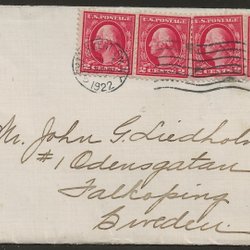 U.S. POSTAGE U.S. POSTAGE U.S. POSTAGE
2 CENTS 2 2 CENTS 2 2 CENTS
1922
Mr. John G. Liedholm
#1 Odensgatan
Falkoping
Sweden